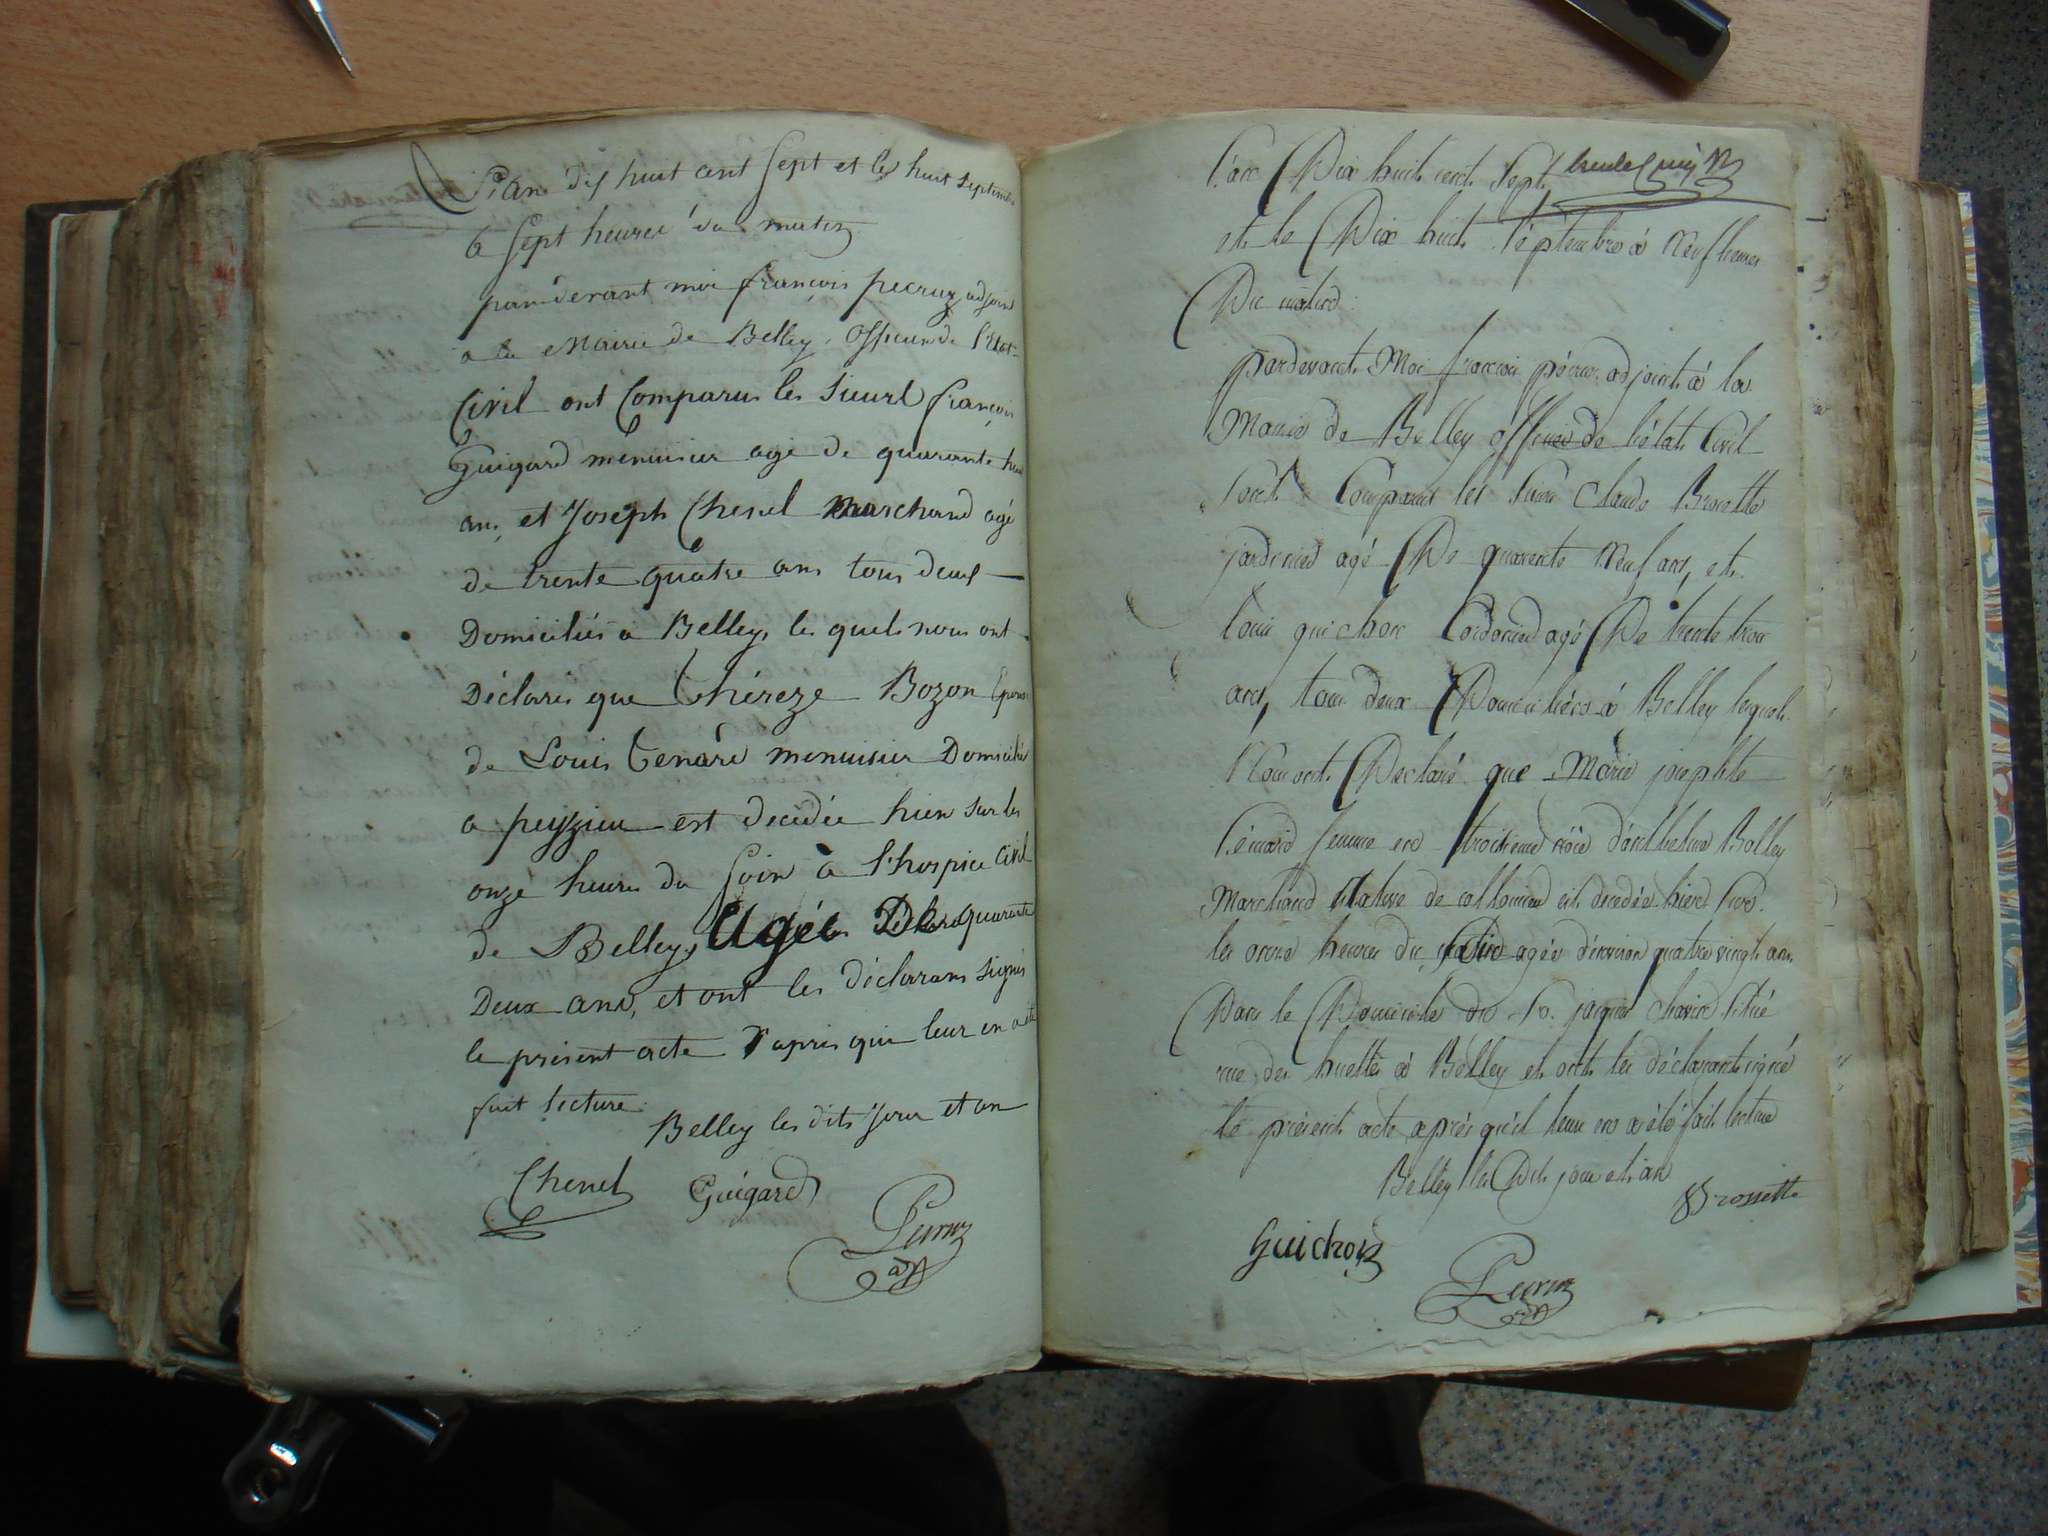 L'an dix huit cent Sept et le huit Septembre
a Sept heures du matin
pardevant moi françois pecruz adjoint
a la Mairie de Belley, officier de l'Etat
Civil ont Comparus les Sieurs françois
Guigard menuisier agé de quarante huit
ans, et Joseph Chenel marchand agé
de trente quatre ans tous deux
Domiciliés a Belley, les quels nous ont
Déclarés que Théreze Bozon Epouse
de Louis Tenare menuisier Domicilié
a peyzieu est decedée hier sur les
onze heures du soir à l'hospice Civil
de Belley, Agée De quarante
Deux ans, et ont les déclarans signés
le présent acte d'apres que leur en a été
fait lecture.
Belley les dits Jour et an
Chenel Guigard
Pecruz
adt
L'an Dix huit cent Sept
et le Dix huit Septembre à Neuf heures
Du matin
pardevant Moi francois pécruz adjoint à la
Mairie de Belley officier de l'état Civil
sont Comparus les Sieurs Claude Brosette
jardinier agé De quarente Neuf ans, et
Louis guichon Cordonier agé De trente trois
ans, tous deux Domiciliés à Belley lesquels
Nous ont Declaré que Marie josephte
femme en Bolley
Marchand Native de est decedée hier sur
les onze heures du matin agée d'environ quatre vingt ans
Dans le Domicile du Sr. jaques situé
rue des à Belley et ont les déclarants signé
le présent acte après qu'il leur en a été fait lecture
Belley les Dit jour et an
Brossette
Guichon
Pecruz
adt